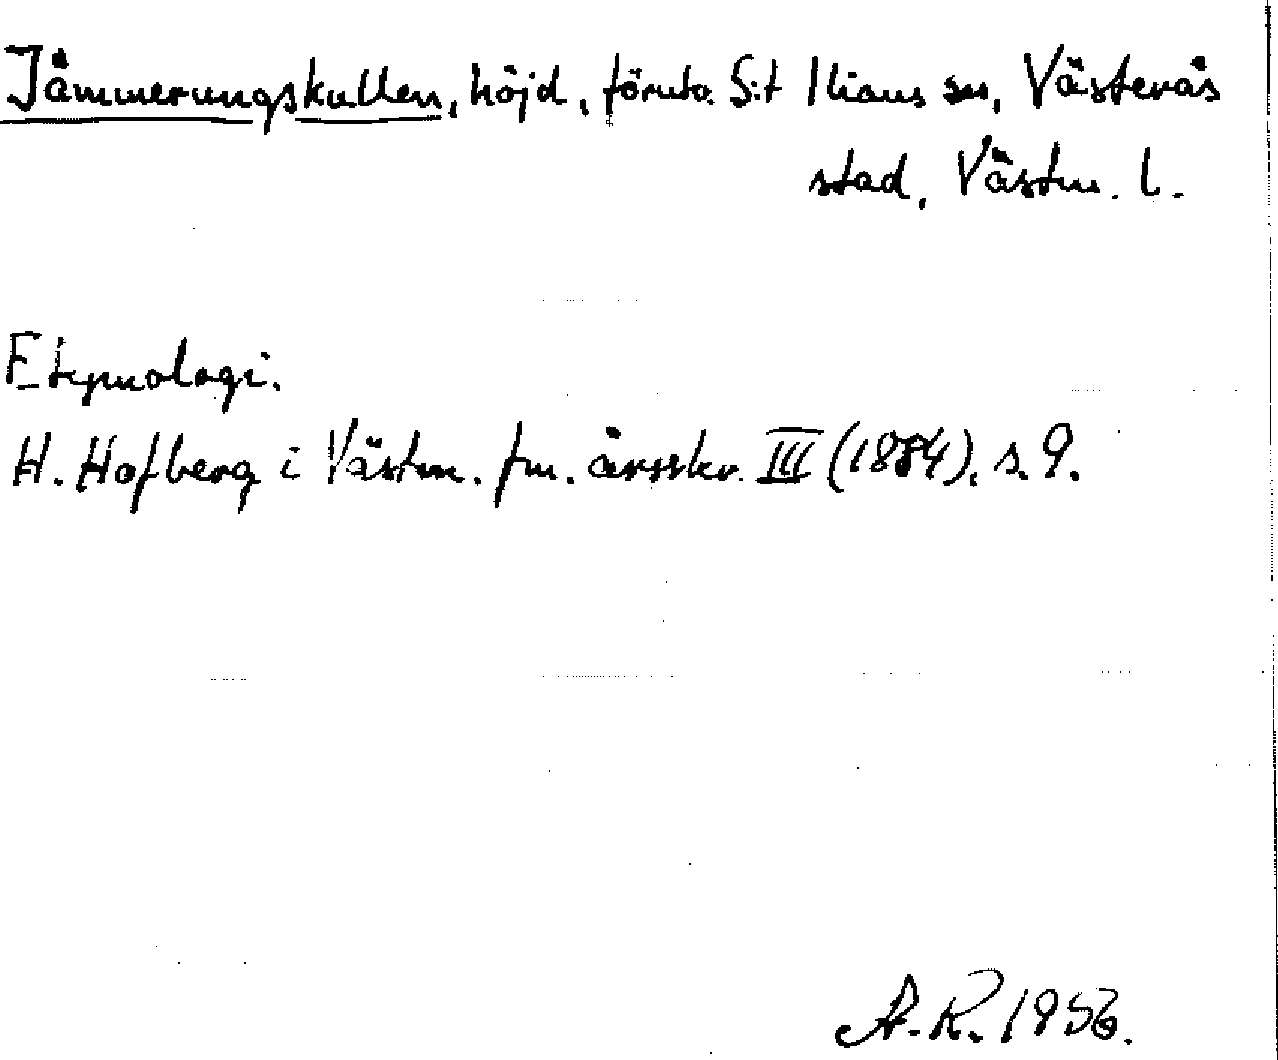 Jämmerungskullen, höjd, förutv. S:t Ilians sn, Västerås
stad, Västm. l.
Etymologi.
H. Hofberg i Västm. fm. årsskr. III (1884), s. 9.
A.R. 1956.